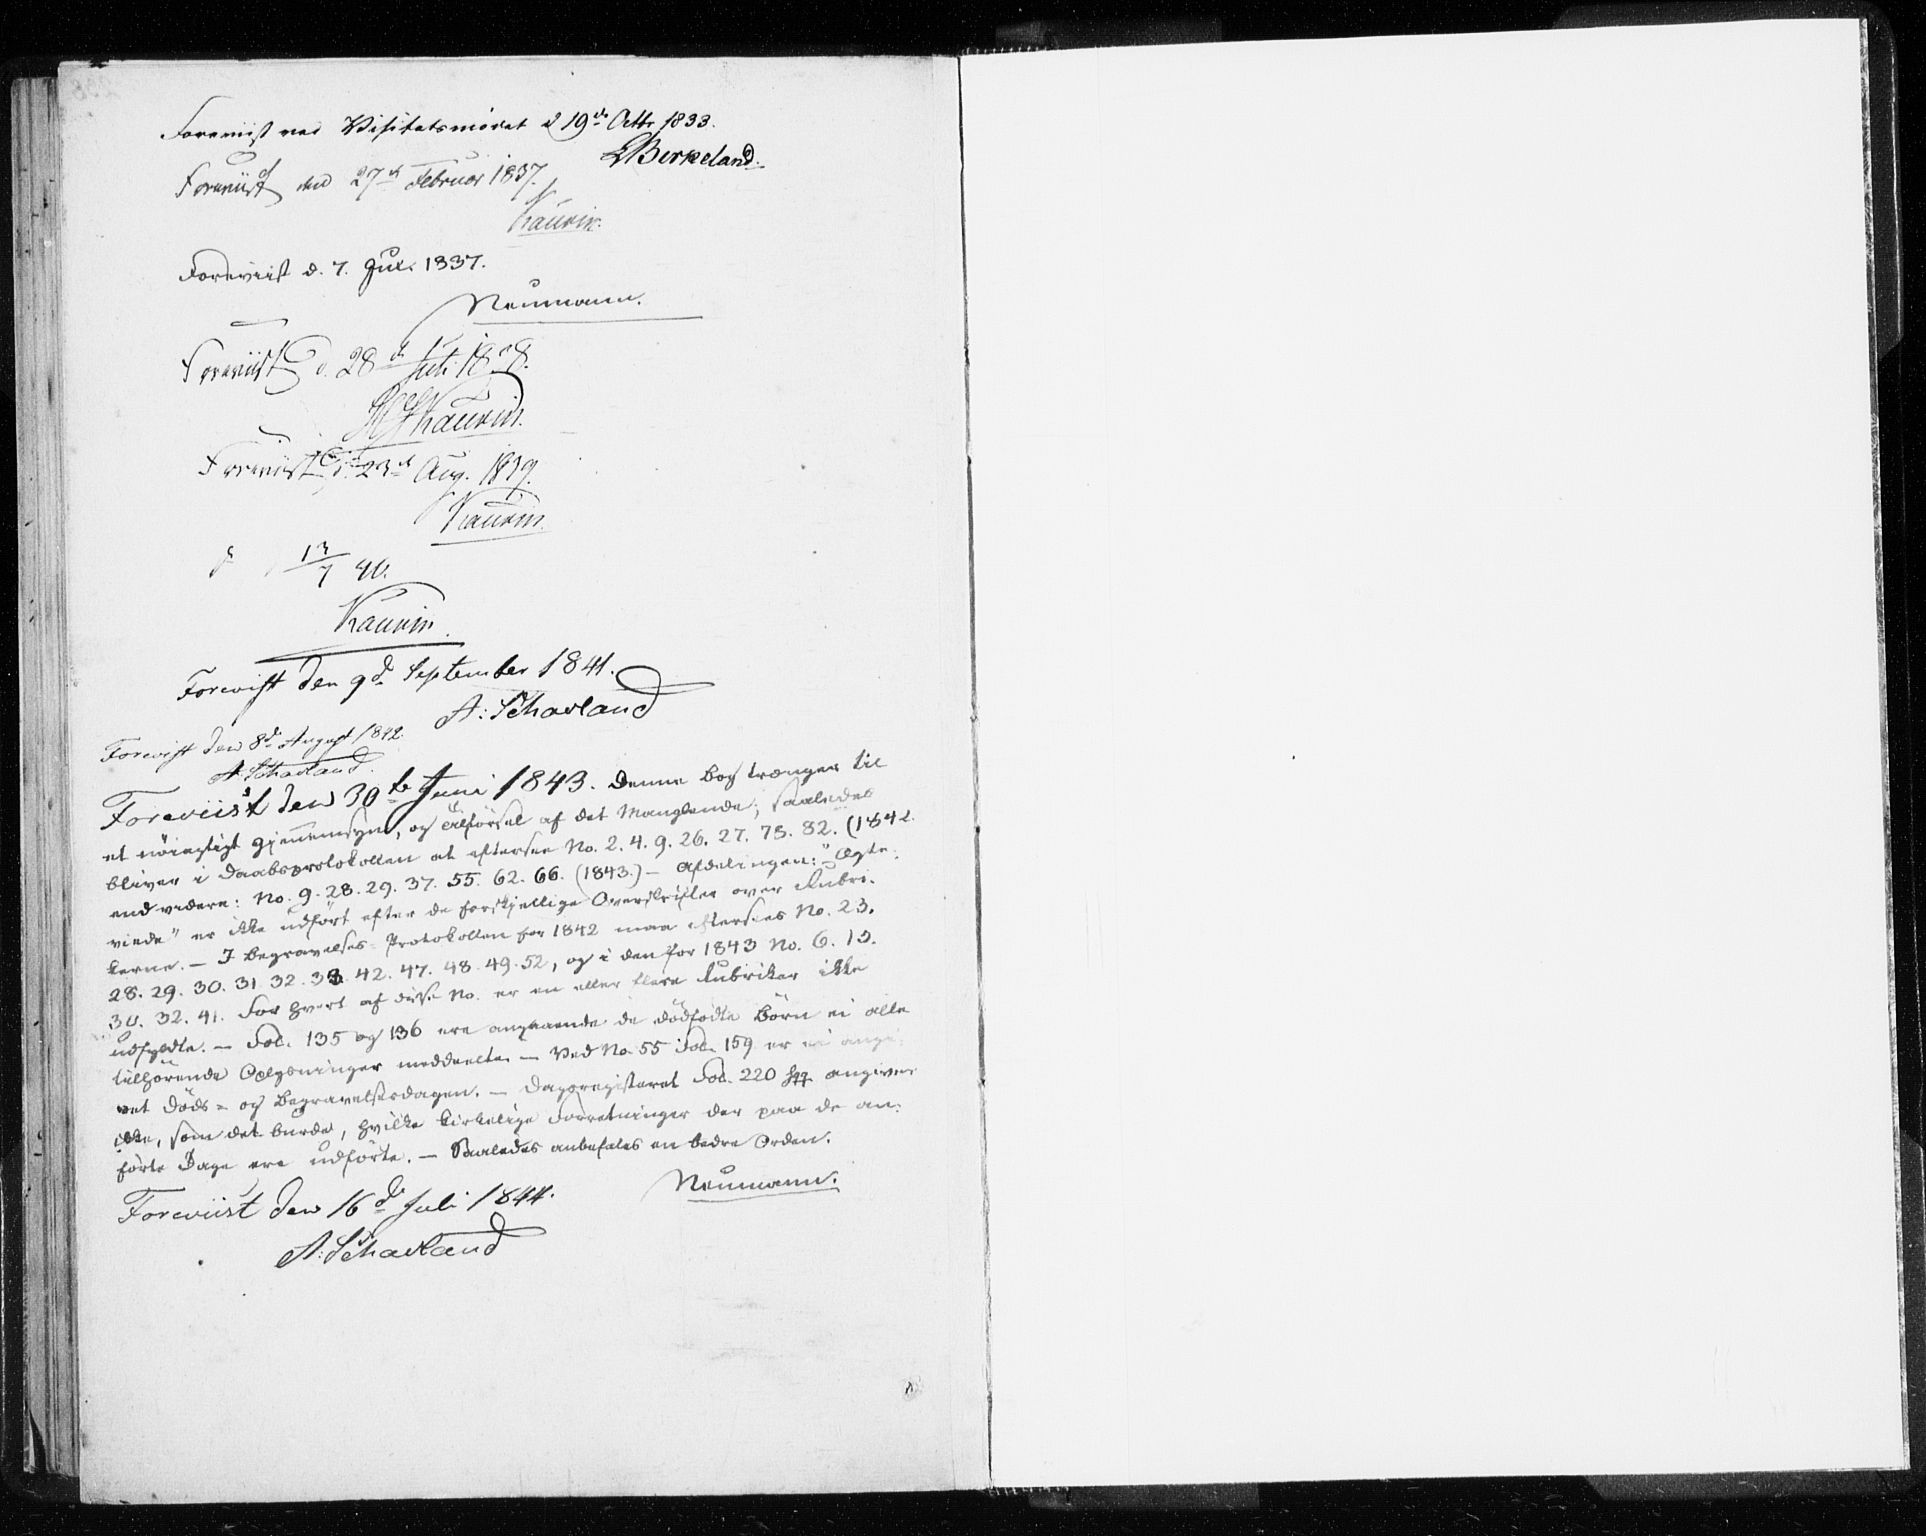 Foreviist ved Visitatsmødet d 19de Octbr 1833.
LBirkeland.
Foreviist den 27de Februar 1837.
Kaurin.
Foreviist d. 7. Jul. 1837.
Neumann.
Foreviist d. 28de Juli 1838.
Kaurin.
Foreviist d. 23de Aug. 1839.
Kaurin.
13/7 40.
Kaurin.
Forevist den 9de September 1841.
A: Schavland
Forevist den 8de August 1842.
A: Schavland.
Foreviist den 30te Juni 1843. Denne bog trænger til
et nöiagtigt gjennemsyn, og tilförsel af det Manglende; saaledes
bliver i Daabsprotokollen at eftersee No. 2. 4. 9. 26. 27. 73. 82. (1842.
end videre: No. 9. 28. 29. 37. 55. 62. 66. (1843.) – Afdelingen: "Ægte-
viede" er ikke udfört efter de forskjellige Overskrifter over Rubri-
kerne. – I begravelses-Protokollen for 1842 maa eftersees No. 23.
28. 29. 30. 31. 32. 33. 42. 47. 48. 49. 52, og i den for 1843 No. 6. 13.
30. 32. 41. For hvert af disse No. er en eller flere Rubriker ikke
udfyldte. – Fol. 135 og 136 ere angaaende de dödfödte Börn ei alle
tilhörende Oplysninger meddeelte. – Ved No. 55 Fol. 159 er ei angi-
vet Döds- og Begravelsesdagen. – Dagsregisteret Fol. 220 sqq angiver
ikke, som det burde, hvilke kirkelige Forretninger der paa de an-
förte Dage ere udförte. – Saaledes anbefales en bedre Orden.
Neumann.
Foreviist den 16de Juli 1844.
A: Schavland